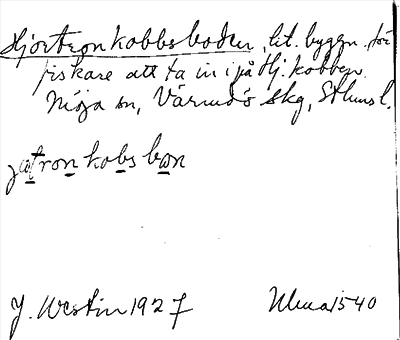 Hjortronkobbsboden, lit. byggn. för
fiskare att ta in i på Hj.kobben.
Möja sn, Värmdö skg, Sthms l.
jωtron kobs bωn
J. Westin 1927 Ulma 1540